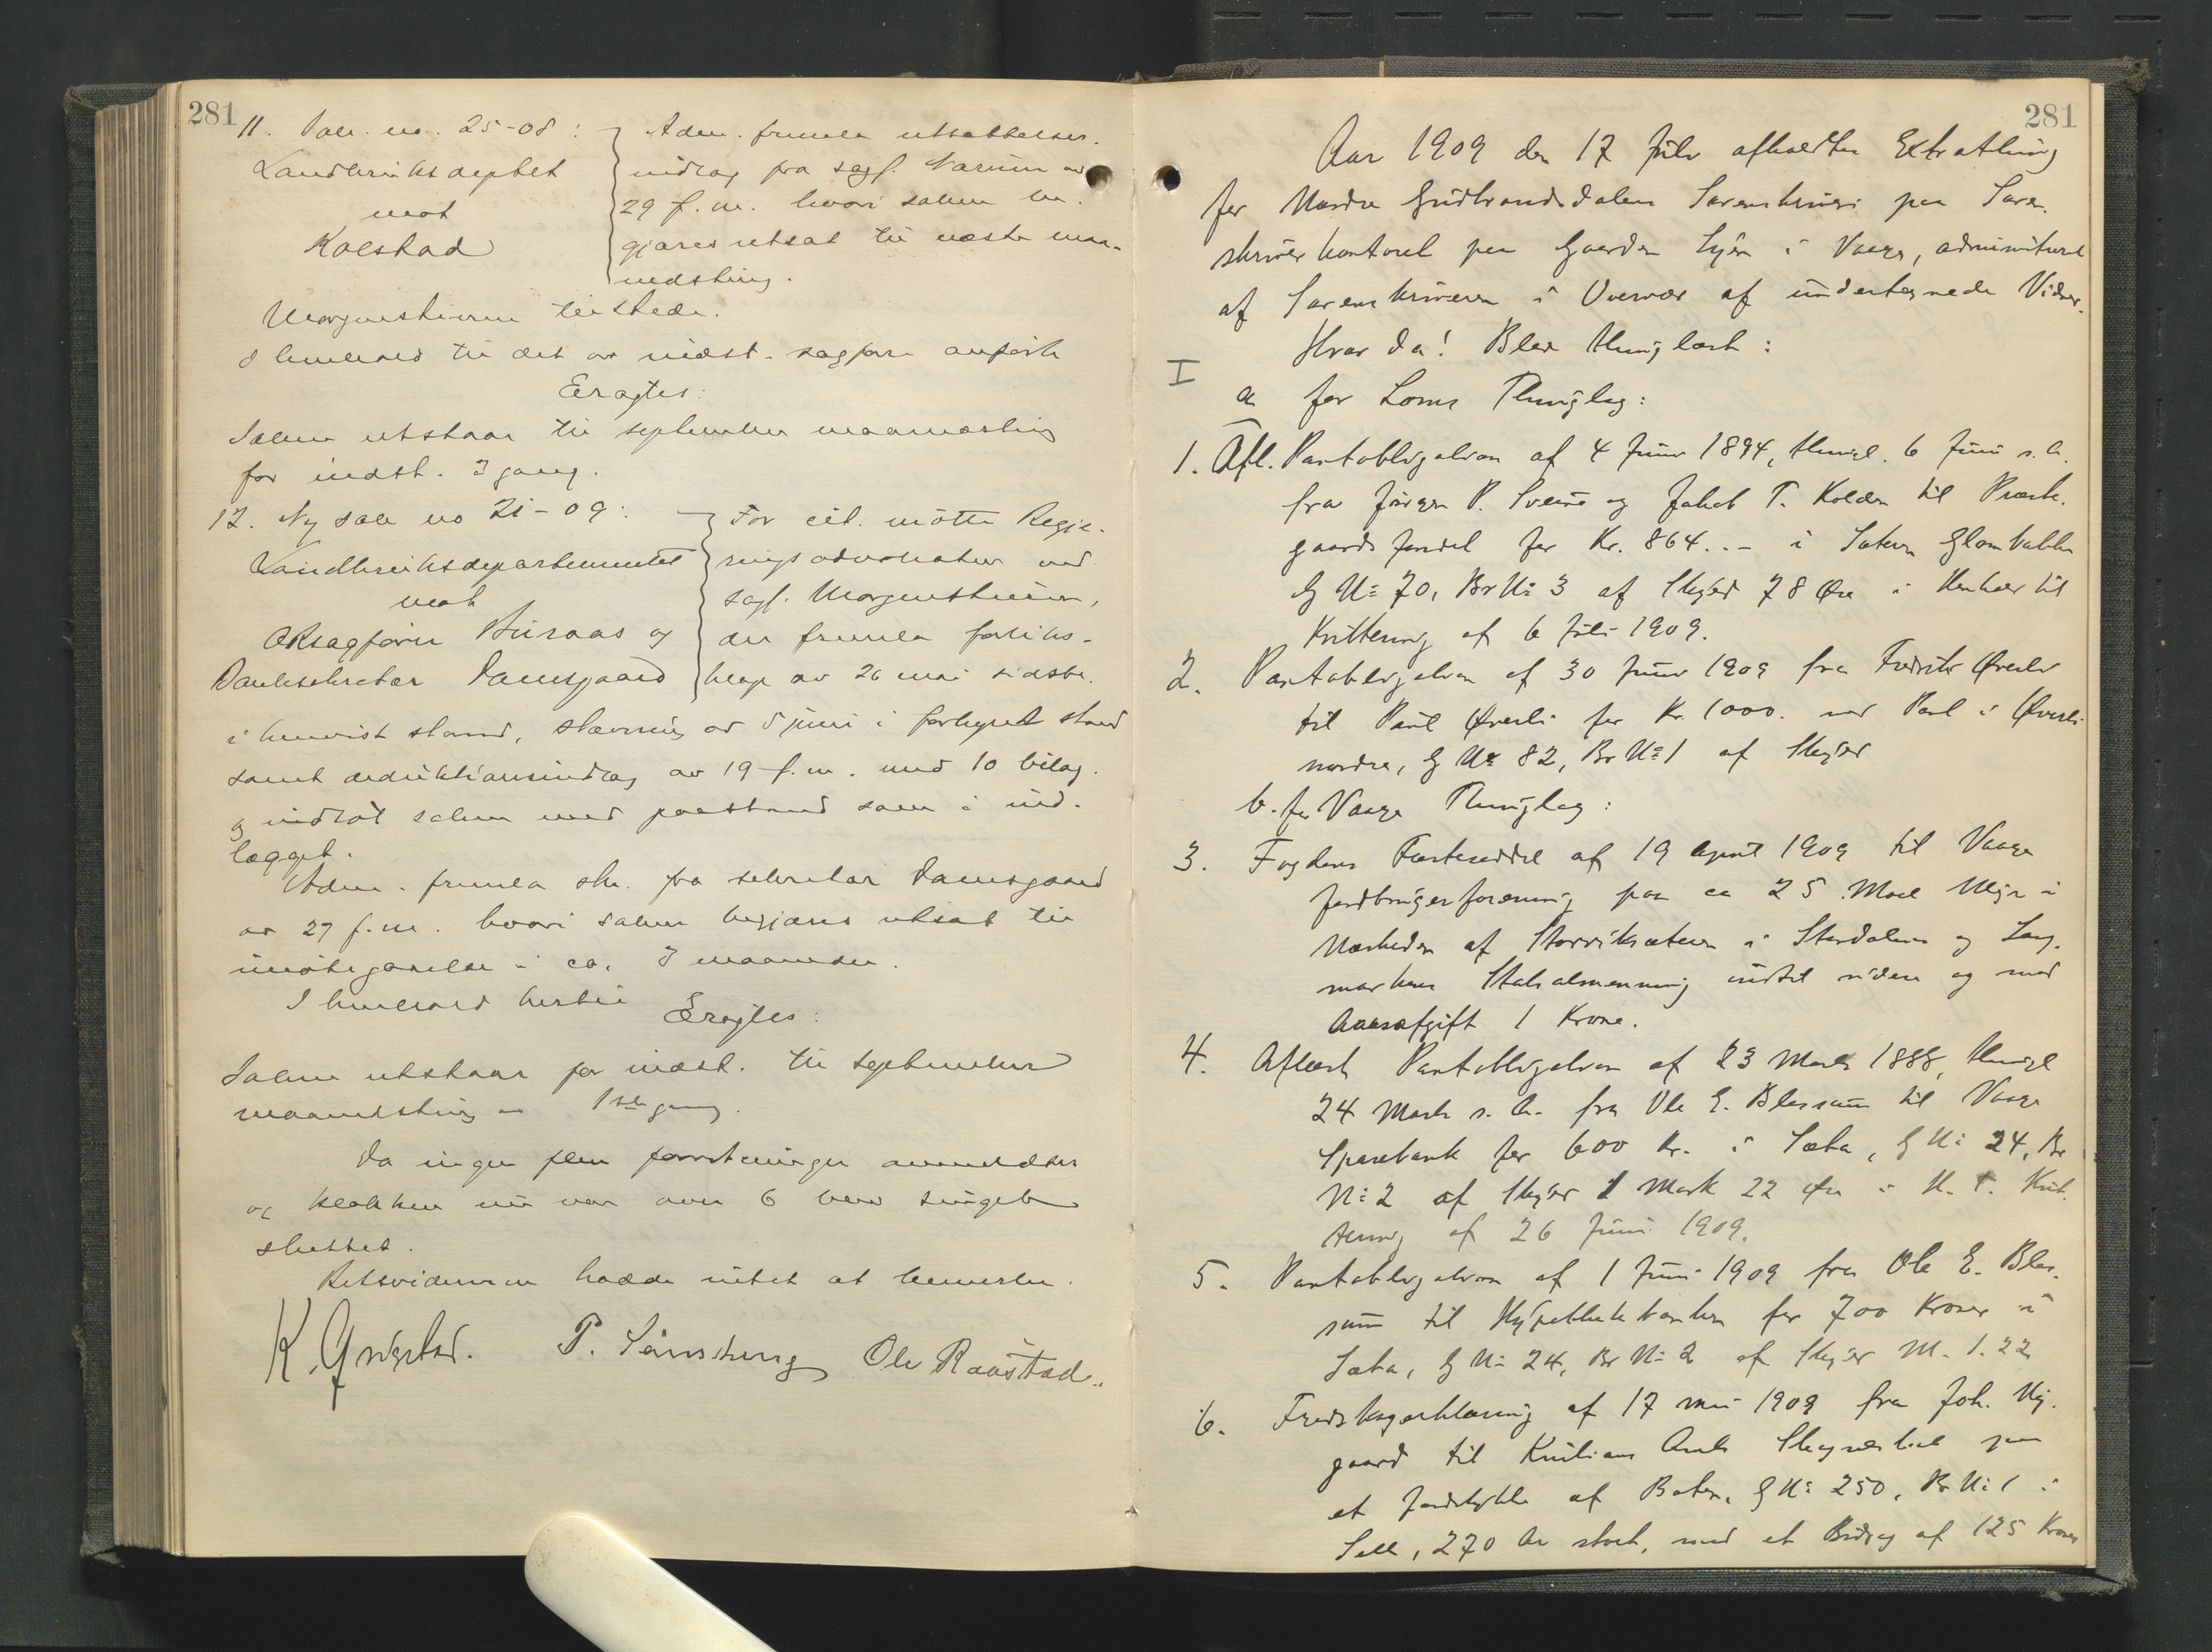 281
11. Sak no. 25-08:
Landbruksdeptet
mot
Kolstad
Adm. fremla utsættelses-
indlæg fra sagf. Narum av
29 f.m. hvori saken be-
gjæres utsat til næste maa-
nedsting.
Morgenstierne tilstede.
I henhold til det av indst. sagfører anførte
Eragtes:
Saken utstaar til september maanedsting
for indst. 3 gang.
12. Ny sak no 21-09:
Landbruksdepartementet
mot
O.R.sagfører Huraas og
Banksekretær Damsgaard
For cit. møtte Regje-
ringsadvokaten ved
sagf. Morgenstierne,
der fremla forliks-
klage av 26 mai sidste.
i henvist stand, stævning av 5 juni i forkyndt stand
samt deduktionsindlæg av 19 f.m. med 10 bilag.
og indlot saken med paastand som i ind-
lægget.
Adm. fremla skr. fra sekretær Damsgaard
av 27 f.m. hvori saken begjæres utsat til
imøtegaaelse i ca. 3 maaneder.
I henhold hertil
Eragtes:
Saken utstaar for indst. til september
maanedsting 1ste gang.
Da ingen flere forretninger anmeldtes
og klokken nu var over 6 blev tinget
sluttet.
Retsvidnerne hadde intet at bemerke.
K. P. Ole Raastad.
281
Aar 1909 den 17 Juli afholdtes Extrathing
for Nordre Gudbrandsdalens Sorenskriveri paa Soren-
skriverkontoret paa Gaarden Syse i Vaage, administreret
af Sorenskriveren i Overvær af undertegnede Vidner.
Hvor da! Blev thinglæst:
I
a for Loms Thinglag:
1. Afl. Pantobligation af 4 Juni 1894, thingl. 6 Juni s. A.
fra Jørgen P. Sveine og Jakob T. Kolden til Præste-
gaards fondet for Kr. 864.- i Sæteren Glombakken
G No 70, Br No 3 af Skyld 78 Øre i Henhold til
Kvittering af 6 Juli 1909.
2. Pantobligation af 30 Juni 1909 fra Fredrik Øverli
til Paul Øverli for Kr. 1000. med Pant i Øverli
nordre, G No 82, Br No 1 af Skyld
b. for Vaage Thinglag:
3. Fogdens Fæsteseddel af 19 April 1909 til Vaage
Jordbrugerforening paa ca 25 Maal Myr i
Nærheden af Storviksæteren i Stordalen og Lang-
markens Statsalmenning indtil videre og mod
Aarsafgift 1 Krone.
4. Aflæst Pantobligation af 23 Marts 1888, thingl
24 Marts s. A. fra Ole E. Blessum til Vaage
Sparebank for 600 Kr. i Sæta, G No 24, Br
No 2 af Skyld 1 Mark 22 Øre i H. t. Kvit-
tering af 26 Juni 1909.
5. Pantobligation af 1 Juni 1909 fra Ole E. Bles-
sum til Hypothekbanken for 700 Kroner i
Sæta, G No 24, Br No 2 af Skyld M. 1.22
6. Fredskogerklæring af 17 mai 1909 fra Joh. Ny-
gaard til Kristians Amts Skogselskab paa
et Jordstykke af Boten, G No 250, Br No 1 i
Sell, 270 Ar stort, med et Bidrag af 125 Kroner